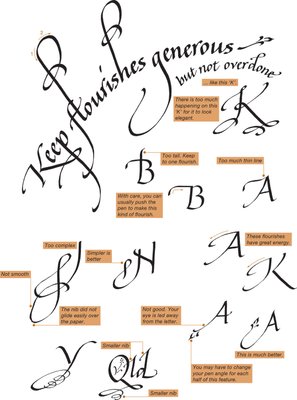 Keep flourishes generous
but not overdone
...like this 'K'.
There is too much
happening on this
'K' for it to look
elegant.
K
Too tall. Keep
to one flourish.
Too much thin line
B
B
A
With care, you can
usually push the
pen to make this
kind of flourish.
Too complex
Simpler is
better
These flourishes
have great energy.
N
A
K
Not smooth
The nib did not
glide easily over
the paper.
Not good. Your
eye is led away
from the letter.
A
A
This is much better.
Smaller nib
You may have to change
your pen angle for each
half of this feature.
y
Qld
Smaller nib